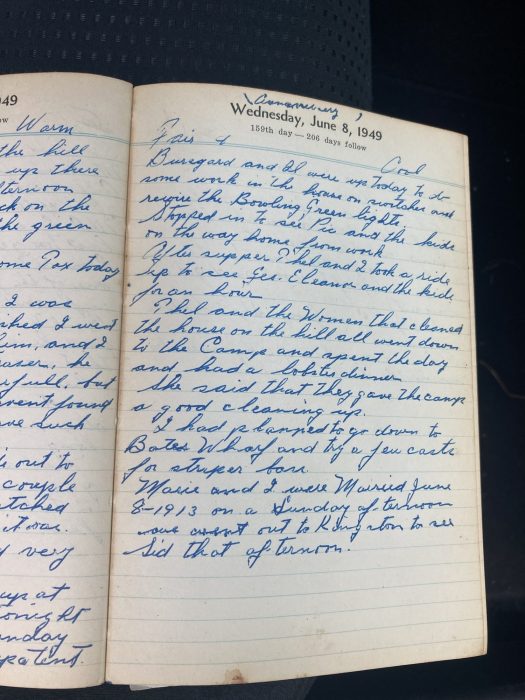 949
w
Warm
the hill
up there
ternoon
ck on the
the green
ome Tax today
I was
shed I went
him, and I
aser, he
rfull, but
went found
ve such
is out to
couple
tched
it was.
d very
up at
tonight
unday
patent.
Anniversery
Wednesday, June 8, 1949
159th day — 206 days follow
Fair & Cool
Buregard and Al were up today to do
some work in the house on switches and
rewire the Bowling Green lights.
Stopped in to see Pic and the kids
on the way home from work
After supper Thel and I took a ride
up to see Geo. Eleanor and the kids
for an hour
Thel and the Women that cleaned
the house on the hill all went down
to the Camp and spent the day
and had a lobster dinner
She said that they gave the camp
a good cleaning up.
I had planned to go down to
Bates Wharf and try a few casts
for striper bass.
Marie and I were Married June
8-1913 on a Sunday afternoon
went out to Kingston to see
Sid that afternoon.